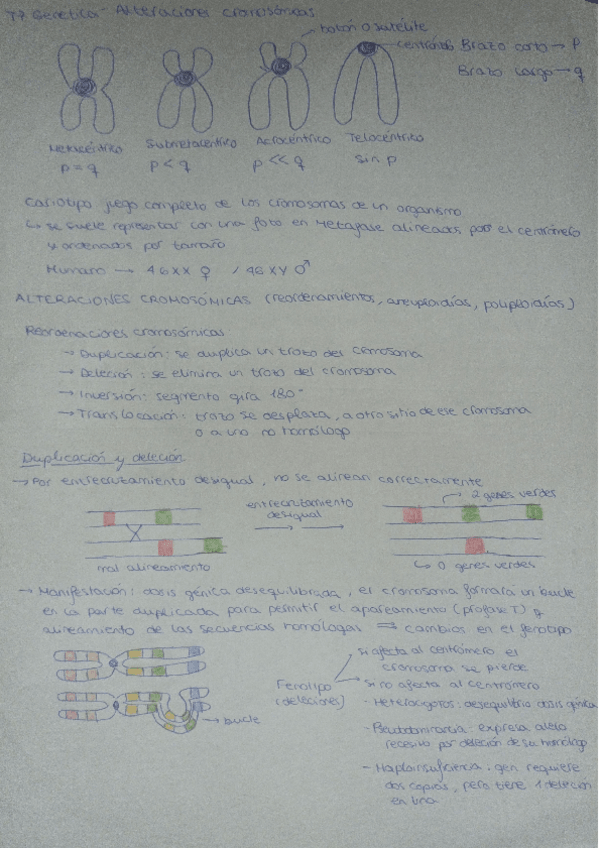 T7 Genética - Alteraciones cromosómicas
botón o satélite
centrómero
Brazo corto → p
Brazo largo → q
Metacéntrico
Submetacéntrico
Acrocéntrico
Telocéntrico
p = q
p < q
p << q
sin p
Cariotipo juego completo de los cromosomas de un organismo
↳ se suele representar con una foto en metafase alineados por el centrómero
y ordenados por tamaño
Humano → 46XX ♀ / 46XY ♂
ALTERACIONES CROMOSÓMICAS (reordenamientos, aneuploidías, poliploidías)
Reordenaciones cromosómicas
→ Duplicación: se duplica un trozo del cromosoma
→ Deleción: se elimina un trozo del cromosoma
→ Inversión: segmento gira 180°
→ Translocación: trozo se desplaza, a otro sitio de ese cromosoma
o a uno no homólogo
Duplicación y deleción
→ Por entrecruzamiento desigual, no se alinean correctamente
entrecruzamiento
desigual
2 genes verdes
mal alineamiento
↳ 0 genes verdes
→ Manifestación: dosis génica desequilibrada, el cromosoma formará un bucle
en la parte duplicada para permitir el apareamiento (profase I) y
alineamiento de las secuencias homólogas ⇒ cambios en el fenotipo
bucle
Fenotipo
(deleciones)
si afecta al centrómero el
cromosoma se pierde
si no afecta al centrómero
- Heterocigotos: desequilibrio dosis génica
- Pseudodominancia: expresa alelo
recesivo por deleción de su homólogo
- Haploinsuficiencia: gen requiere
dos copias, pero tiene 1 deleción
en una